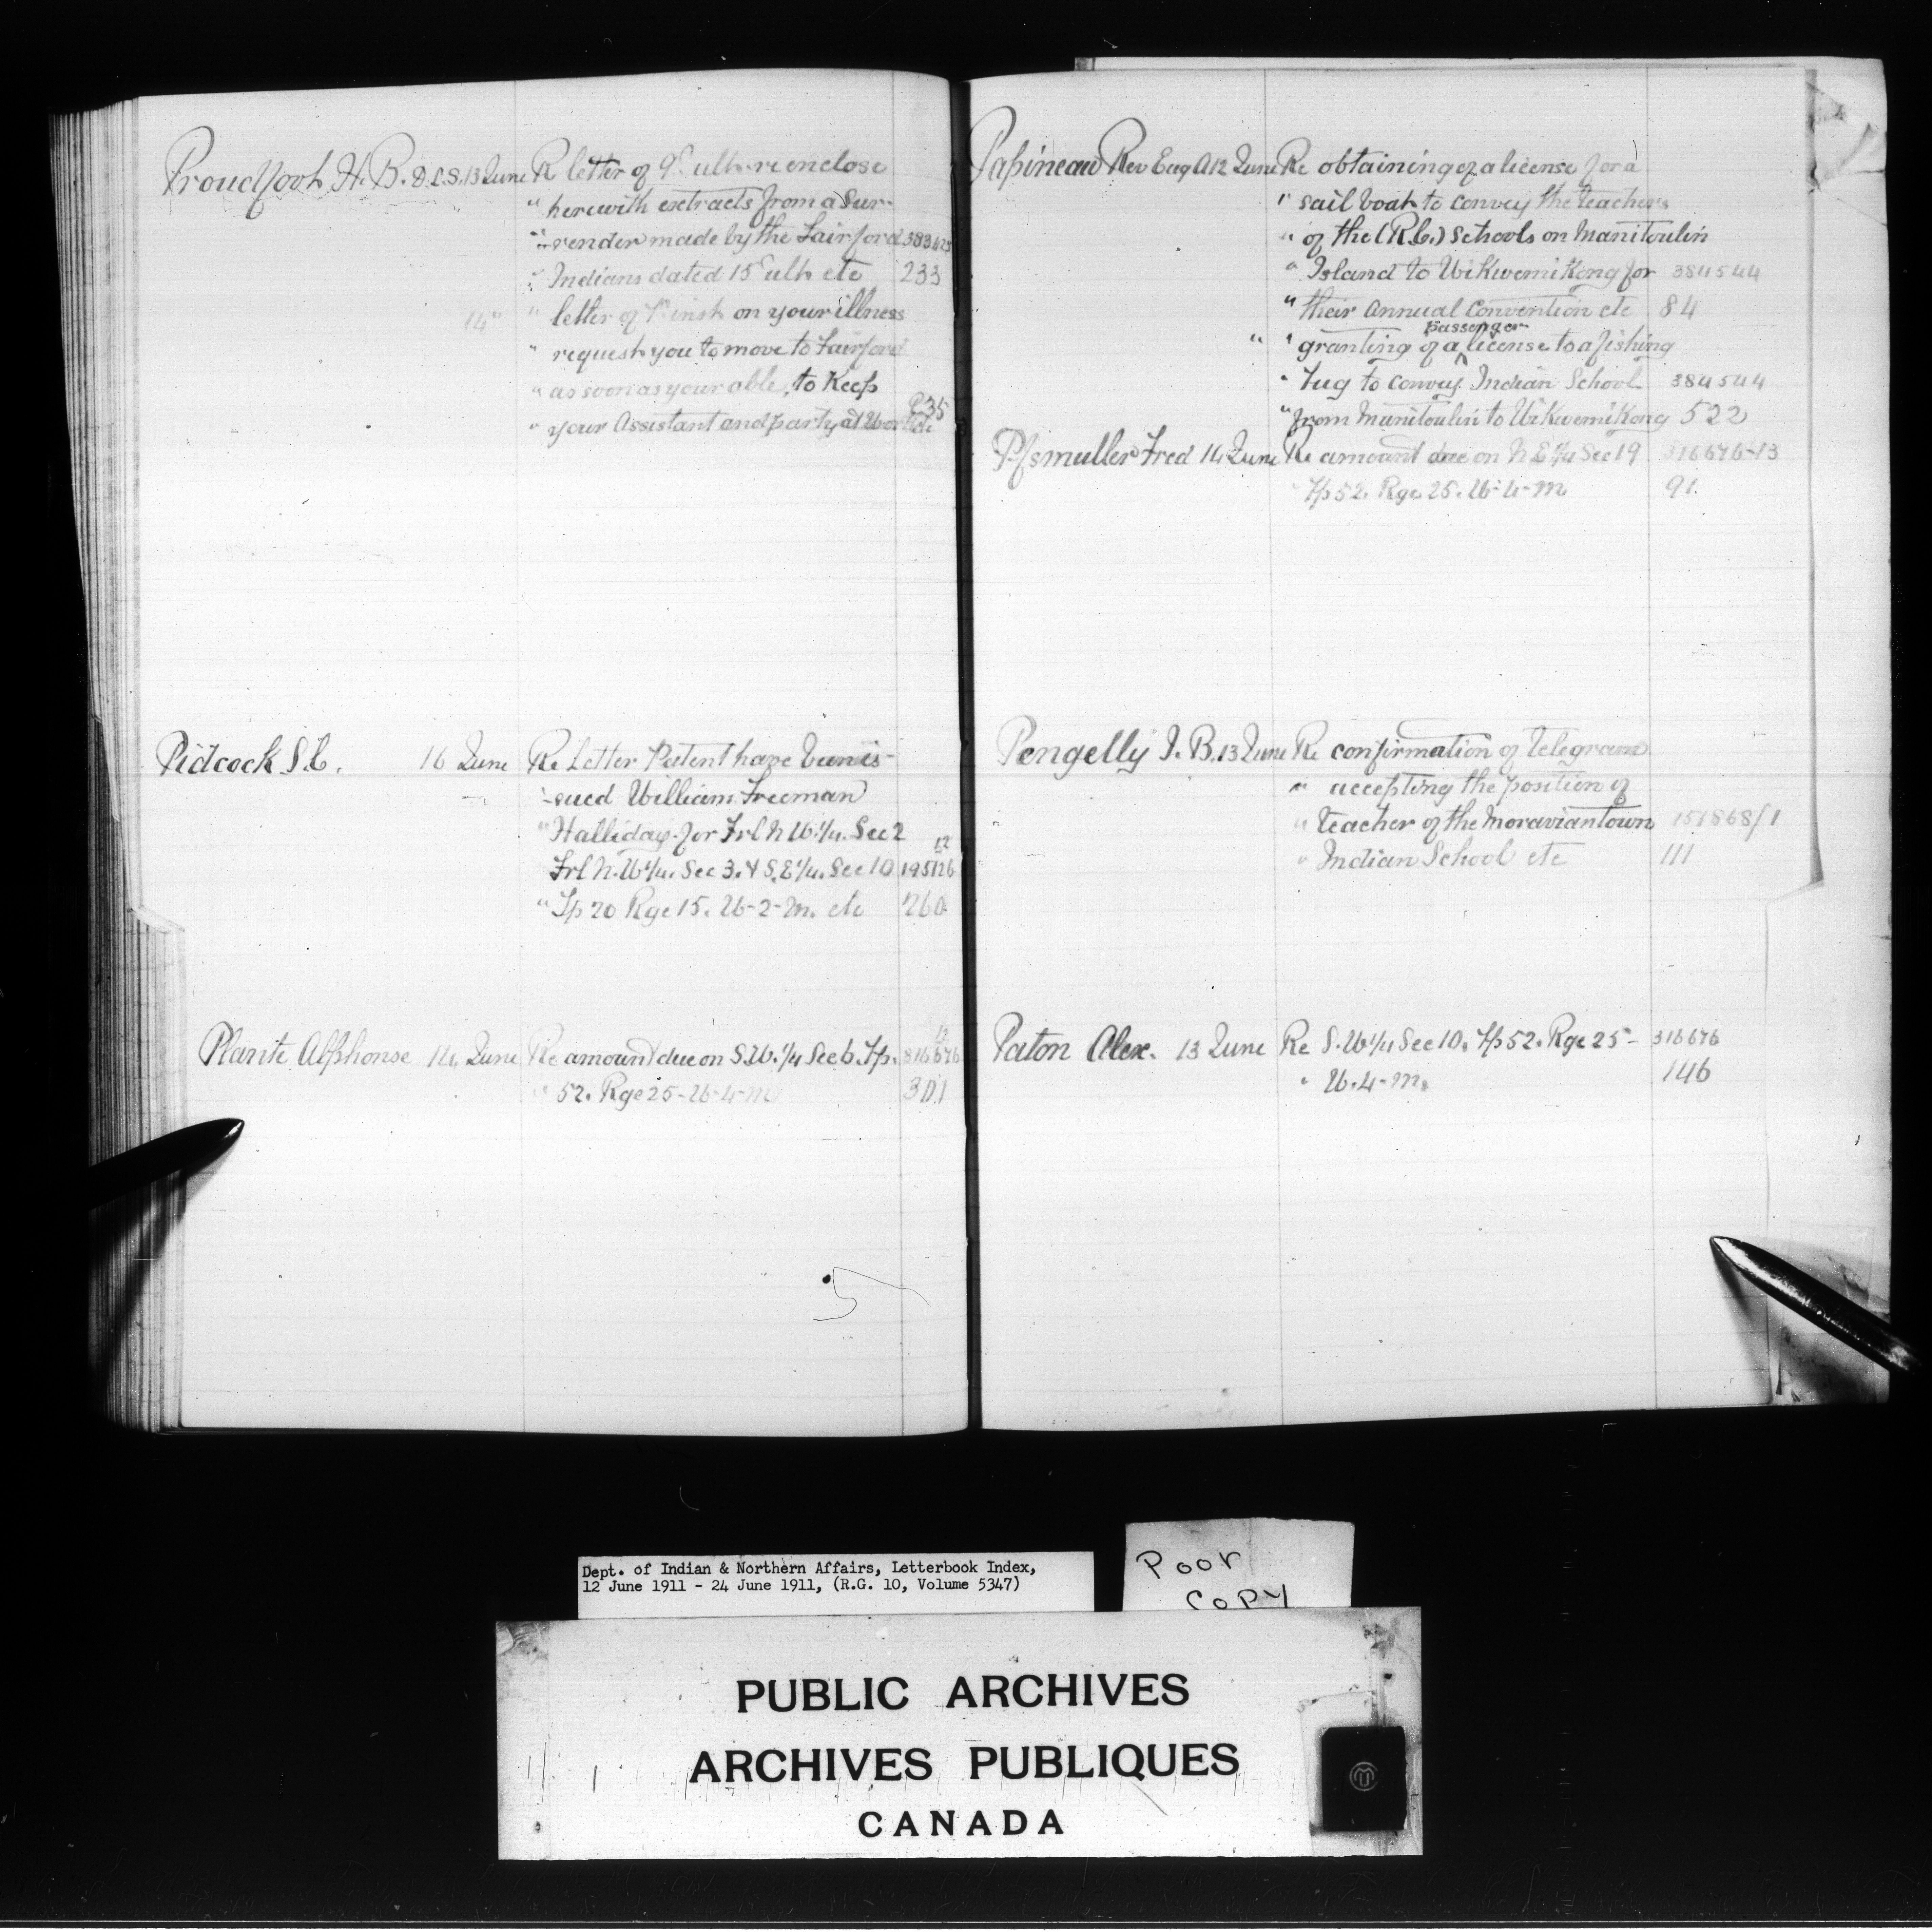 Proudfoot H. B. D.L.S. 13 June Re letter of 9th ulto. re enclose
" herewith extracts from a Sur-
" render made by the Fairford 383425
" Indians dated 15th ulto etc 233
14 " " letter of 1st inst on your illness
" request you to move to Fairford
" as soon as your able, to Keep
" your Assistant and party at Work etc 235
Pidcock S. C. 16 June Re Letter Patent have been is-
" sued William Freeman
" Halliday for Frl N.W.1/4. Sec 2
Frl N.W1/4. Sec 3. & S.E1/4. Sec 10 195126 12
" Tp 20 Rge 15. W-2-M. etc 260
Plante Alphonse 14 June Re amount due on S.W.1/4 Sec 6. Tp. 316676 12
" 52. Rge 25-W-4-M 301
5
Papineau Rev Eug A 12 June Re obtaining of a license for a
" sail boat to convey the teachers
" of the (R.C.) Schools on Manitoulin
" Island to Wikwemikong for 384544
" their Annual Convention etc 84
" " granting of a passenger license to a fishing
" Tug to convey Indian School 384544
" from Manitoulin to Wikwemikong 522
Fred 14 June Re amount due on N.E1/4 Sec 19 316676-13
" Tp 52. Rge 25. W-4-M 91
Pengelly J. B. 13 June Re confirmation of Telegram
" accepting the position of
" teacher of the Moraviantown 151868/1
" Indian School etc 111
Paton Alex. 13 June Re S.W1/4 Sec 10. Tp 52. Rge 25- 316676
" W.4-M. 146
Dept. of Indian & Northern Affairs, Letterbook Index,
12 June 1911 - 24 June 1911, (R.G. 10, Volume 5347)
Poor
Copy
PUBLIC ARCHIVES
ARCHIVES PUBLIQUES
CANADA